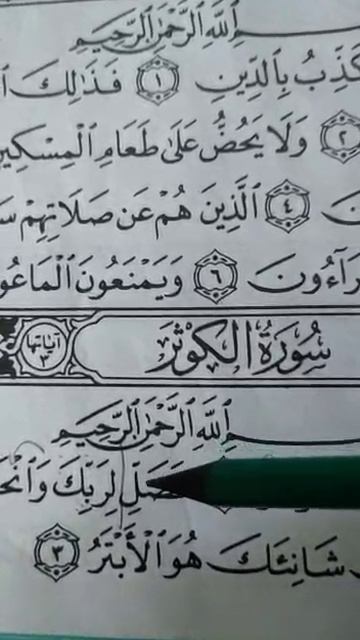 ٱللَّهِ ٱلرَّحْمَٰنِ ٱلرَّحِيمِ
كَذِّبُ بِالدِّينِ ۝١ فَذَٰلِكَ
۝٢ وَلَا يَحُضُّ عَلَىٰ طَعَامِ ٱلْمِسْكِينِ
۝٤ ٱلَّذِينَ هُمْ عَن صَلَاتِهِمْ سَ
رَآءُونَ ۝٦ وَيَمْنَعُونَ ٱلْمَاعُو
سُورَةُ الكَوْثَر آياتها ٣
ٱللَّهِ ٱلرَّحْمَٰنِ ٱلرَّحِيمِ
فَصَلِّ لِرَبِّكَ وَٱنْحَ
شَانِئَكَ هُوَ ٱلْأَبْتَرُ ۝٣